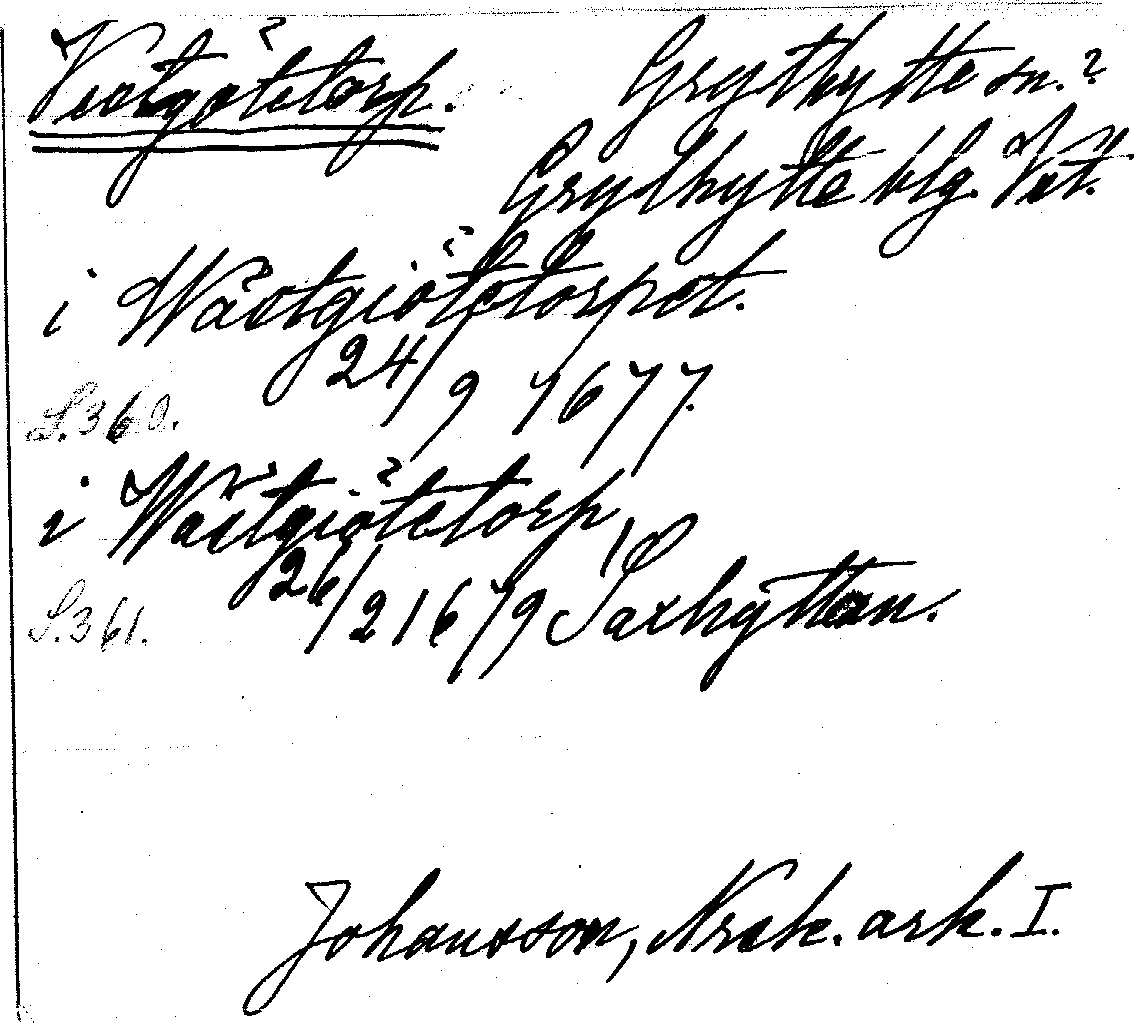 Västgötetorp. Grythytte sn.?
Grythytte blg. Vst.
i Wästgiötetorpet.
24/9 1677.
S. 360.
i Wästgiötetorp
26/2 1679 Saxhyttan.
S. 361.
Johansson, Nrsk. ark. I.